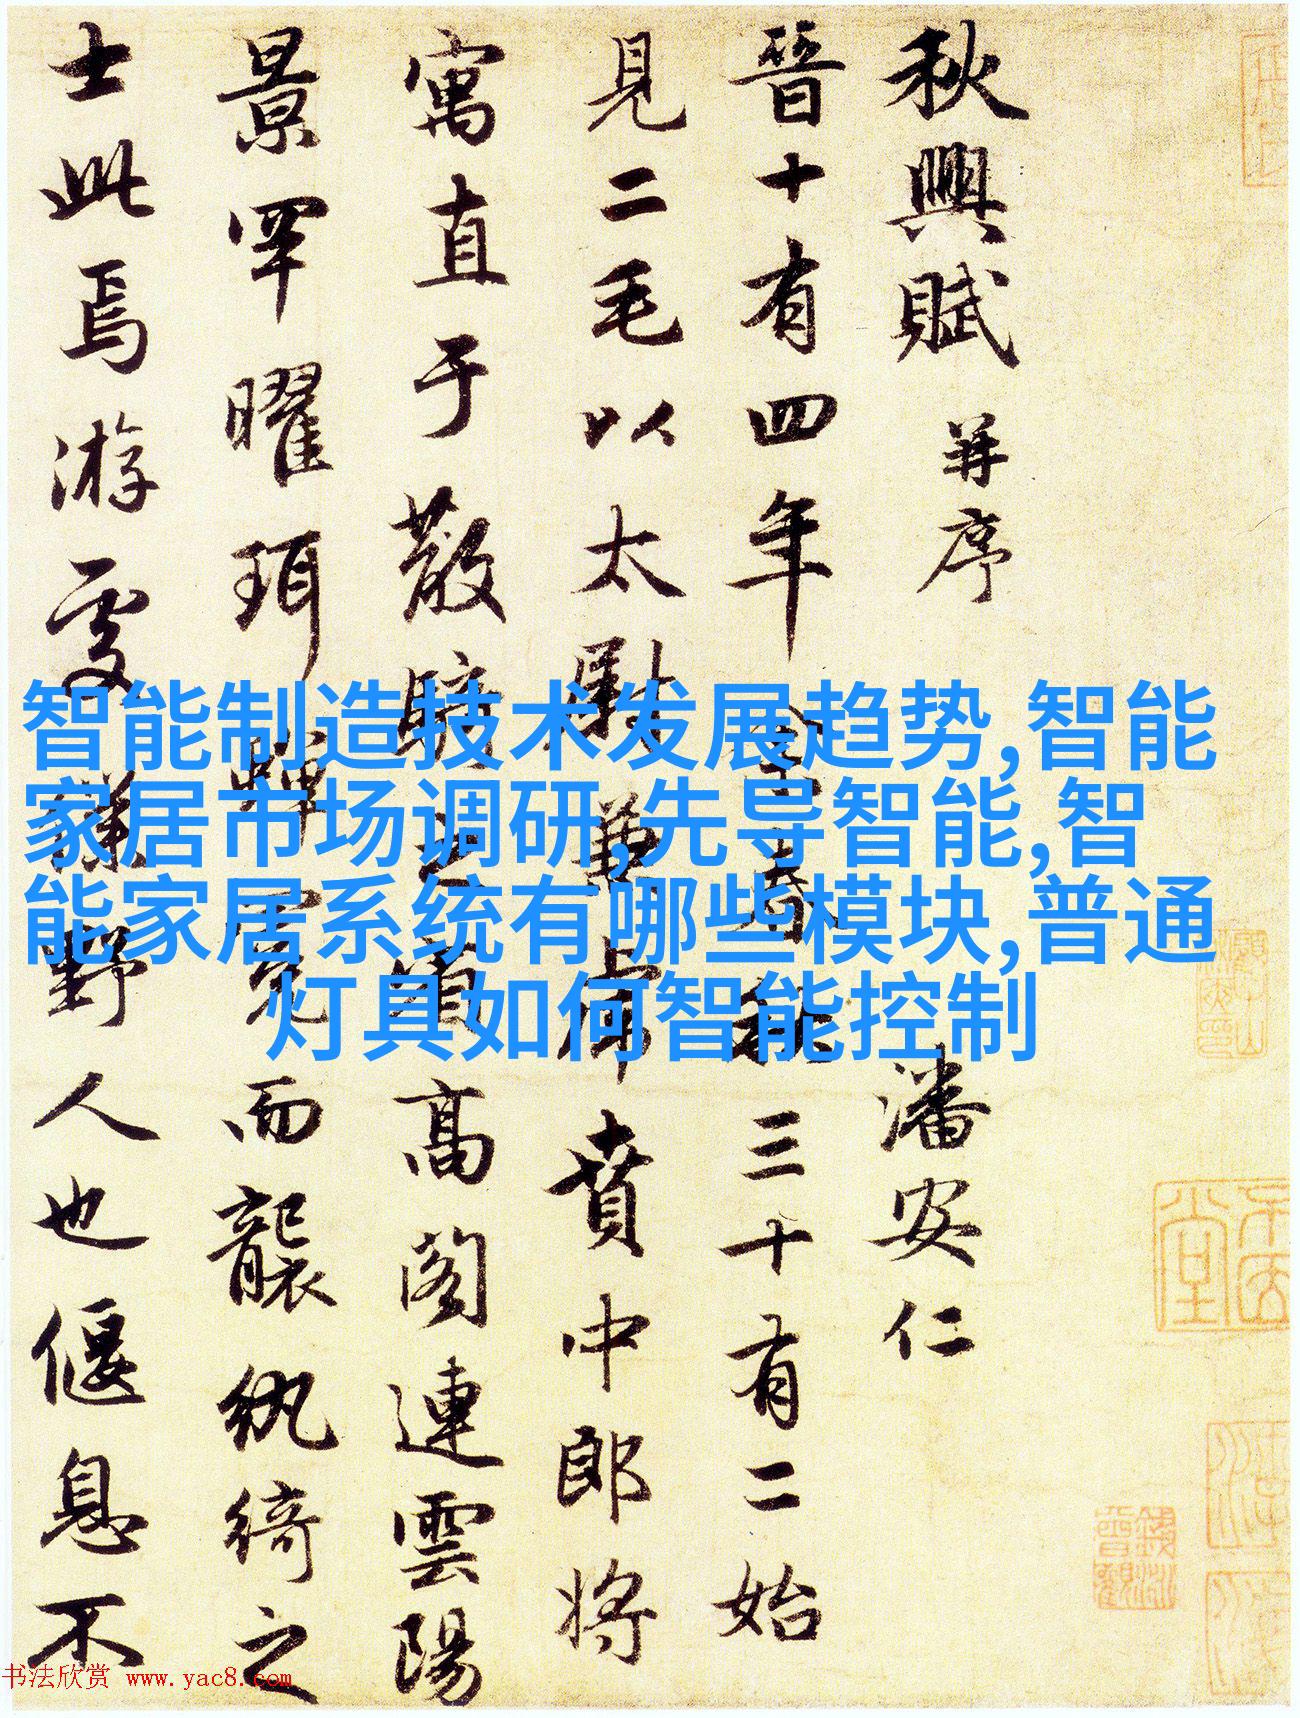 秋興賦 并序 潘安仁
晉十有四年余春秋三十有二始
見二毛以太尉兼虎賁中郎將
寓直于散騎之省高閣連雲陽
景罕曜珥蟬冕而襲紈綺之
士此焉游處僕野人也偃息不
智能制造技术发展趋势,智能
家居市场调研,先导智能,智
能家居系统有哪些模块,普通
灯具如何智能控制
书法欣赏 www.yac8.com